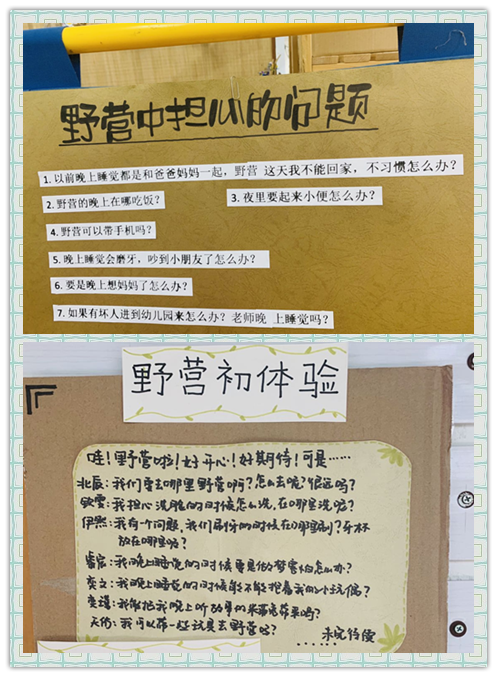 野营中担心的问题
1. 以前晚上睡觉都是和爸爸妈妈一起，野营 这天我不能回家，不习惯怎么办？
2. 野营的晚上在哪吃饭？
3. 夜里要起来小便怎么办？
4. 野营可以带手机吗？
5. 晚上睡觉会磨牙，吵到小朋友了怎么办？
6. 要是晚上想妈妈了怎么办？
7. 如果有坏人进到幼儿园来怎么办？老师晚 上睡觉吗？
野营初体验
哇！野营啦！好开心！好期待！可是……
北辰：我们要去哪里野营啊？怎么去呢？很远吗？
：我担心洗脸的时候怎么洗，在哪里洗呢？
伊然：我有个问题，我们刷牙的时候在哪里刷？牙杯
放在哪里呢？
：我晚上睡觉的时候要是做梦害怕怎么办？
奕文：我晚上睡觉的时候能不能抱着我的小玩偶？
：我能把我晚上听故事的米菲兔带来吗？
：我可以带一些玩具去野营吗？
……未完待续